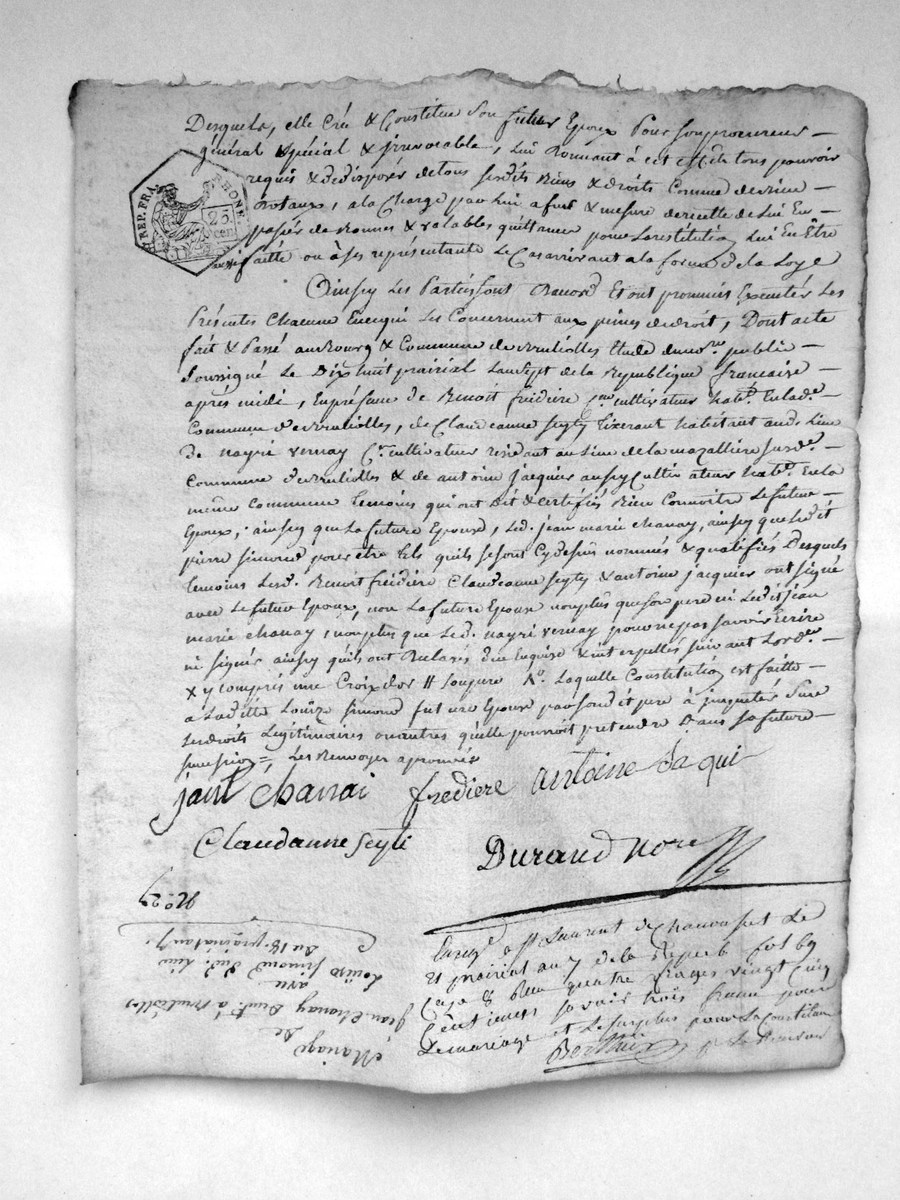 Desquels, elle Crée & Constitue Son futur Epoux Pour Son procureur
général Spécial & irrevocable, Lui Donnant à cet effet tous pouvoir
requis & de disposer de tous Sesdits Biens & droits Comme de biens
Dotaux, à la Charge par Lui à fur & mesure de recette de Lui En
passer de Bonnes & valables quittances pour La restitution Lui En Être
faitte ou à Ses représentants Le Cas arrivant à la forme de la Loy
REP. FRA.
RHONE
25
cen
Ainsy Les Parties Sont d'accord Et ont promis Executer Les
Présentes Chacune En ce qui Les Concernent aux peines de droit, Dont acte
fait & Passé au Bourg & Commune de Brulliolles Etude du no.re public
Soussigné Le Dix huit prairial L'an Sept de la Republique francaise
après midi, En présence de Benoit frédière C.en cultivateur habt. En lad.e
Commune de Brulliolles, de Claudeanne Seyty tixerant habitant aud. Lieu
de nayri vernay C.en cultivateur residant au Lieu de la mazallière Susd.e
Commune de Brulliolles & de antoine jacquier aussy Cultivateur habt. En la
même Commune temoins qui ont Dit & Certifiés Bien Connoitre Le future
Epoux, ainsy que La future Epouse, Led. jean marie Chanay, ainsy que Ledit
pierre Simond pour être tels qu'ils Se Sont Cy dessus nommés & qualifiés Desquels
temoins Lesd. Benoit freidière Claudeanne Seyty & antoine jacquier ont Signé
avec Le futur Epoux, non La future Epouse non plus que Son pere ni Ledit jean
marie Chanay, non plus que Led. nayri vernay pour ne pas Savoir Ecrire
ni Signer ainsy qu'ils ont Declarés Du Enquis & interpellés Suivant L'ord.ce
x y compris une Croix d'or // Laquelle Constitution est faitte
à Laditte Louïze Simond future Epouse par Son dit pere à
Ses droits Legitimaires ou autres qu'elle pourroit pretendre Dans Sa future
Succession = Les Renvoyes aprouvés
jean Chanai fredière antoine Jaqui
Claudanne Seyti
Durand nore
Enreg.é à St Laurent de Chamousset Le
21 prairial an 7 de la Repub. fol 69
Case 8 Reçu quatre francs vingt cinq
Centimes Savoir trois francs pour
Le mariage et Le Surplus pour La Constitution
N.o 27
Mariage
De
Jean Chanay Dud. à Brulliolles
avec
Louïse Simond Dud. Lieu
Du 18 prairial an 7